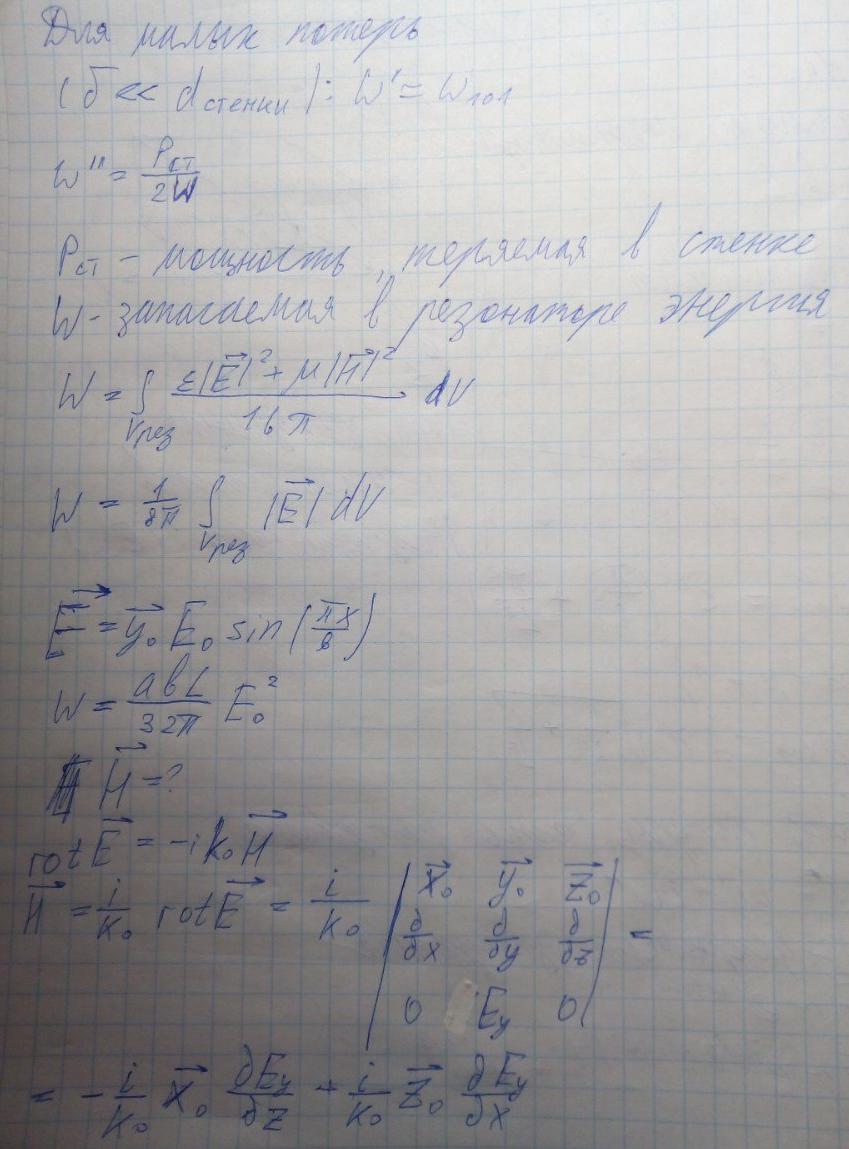 Для малых потерь
(δ << dстенки): ω' = ωгол
ω'' = Pст / 2W
Pст – мощность, теряемая в стенке
W - запасаемая в резонаторе энергия
W = ∫Vрез (ε|E⃗|² + μ|H⃗|²) / 16π dV
W = 1/8π ∫Vрез |E⃗| dV
E⃗ = y⃗₀ E₀ sin(πx/b)
W = abL/32π E₀²
H⃗ = ?
rot E⃗ = -ik₀H⃗
H⃗ = i/k₀ rot E⃗ = i/k₀ | x⃗₀ y⃗₀ z⃗₀ |
| ∂/∂x ∂/∂y ∂/∂z | =
| 0 Ey 0 |
= - i/k₀ x⃗₀ ∂Ey/∂z + i/k₀ z⃗₀ ∂Ey/∂x